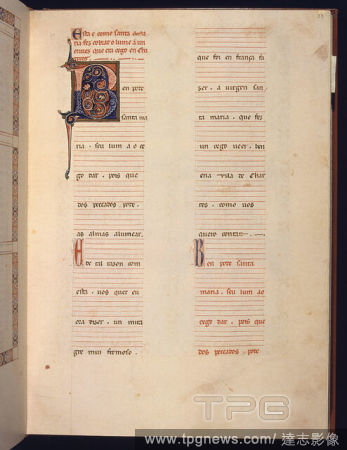 Esta é como santa maria
fez cobrar o lume a un
om̃e que era cego en Char
tes
Ben pote
santa ma
ria, seu lum a o ce
go dar, pois que
dos pecados pote,
as almas alumear.
E de tal razon com
esta, vos quer eu
era dizer, un mira
gre mui fremoso.
que foi en frança fa
zer, a virgen san
ta maria, que fez
un cego veer, ben
ena vila de Char
tes, como vos
quero contar
Ben pote santa
maria, seu lum ao
cego dar, pois que
dos pecados pote
TPG
www.tpgnews.com / 達志影像